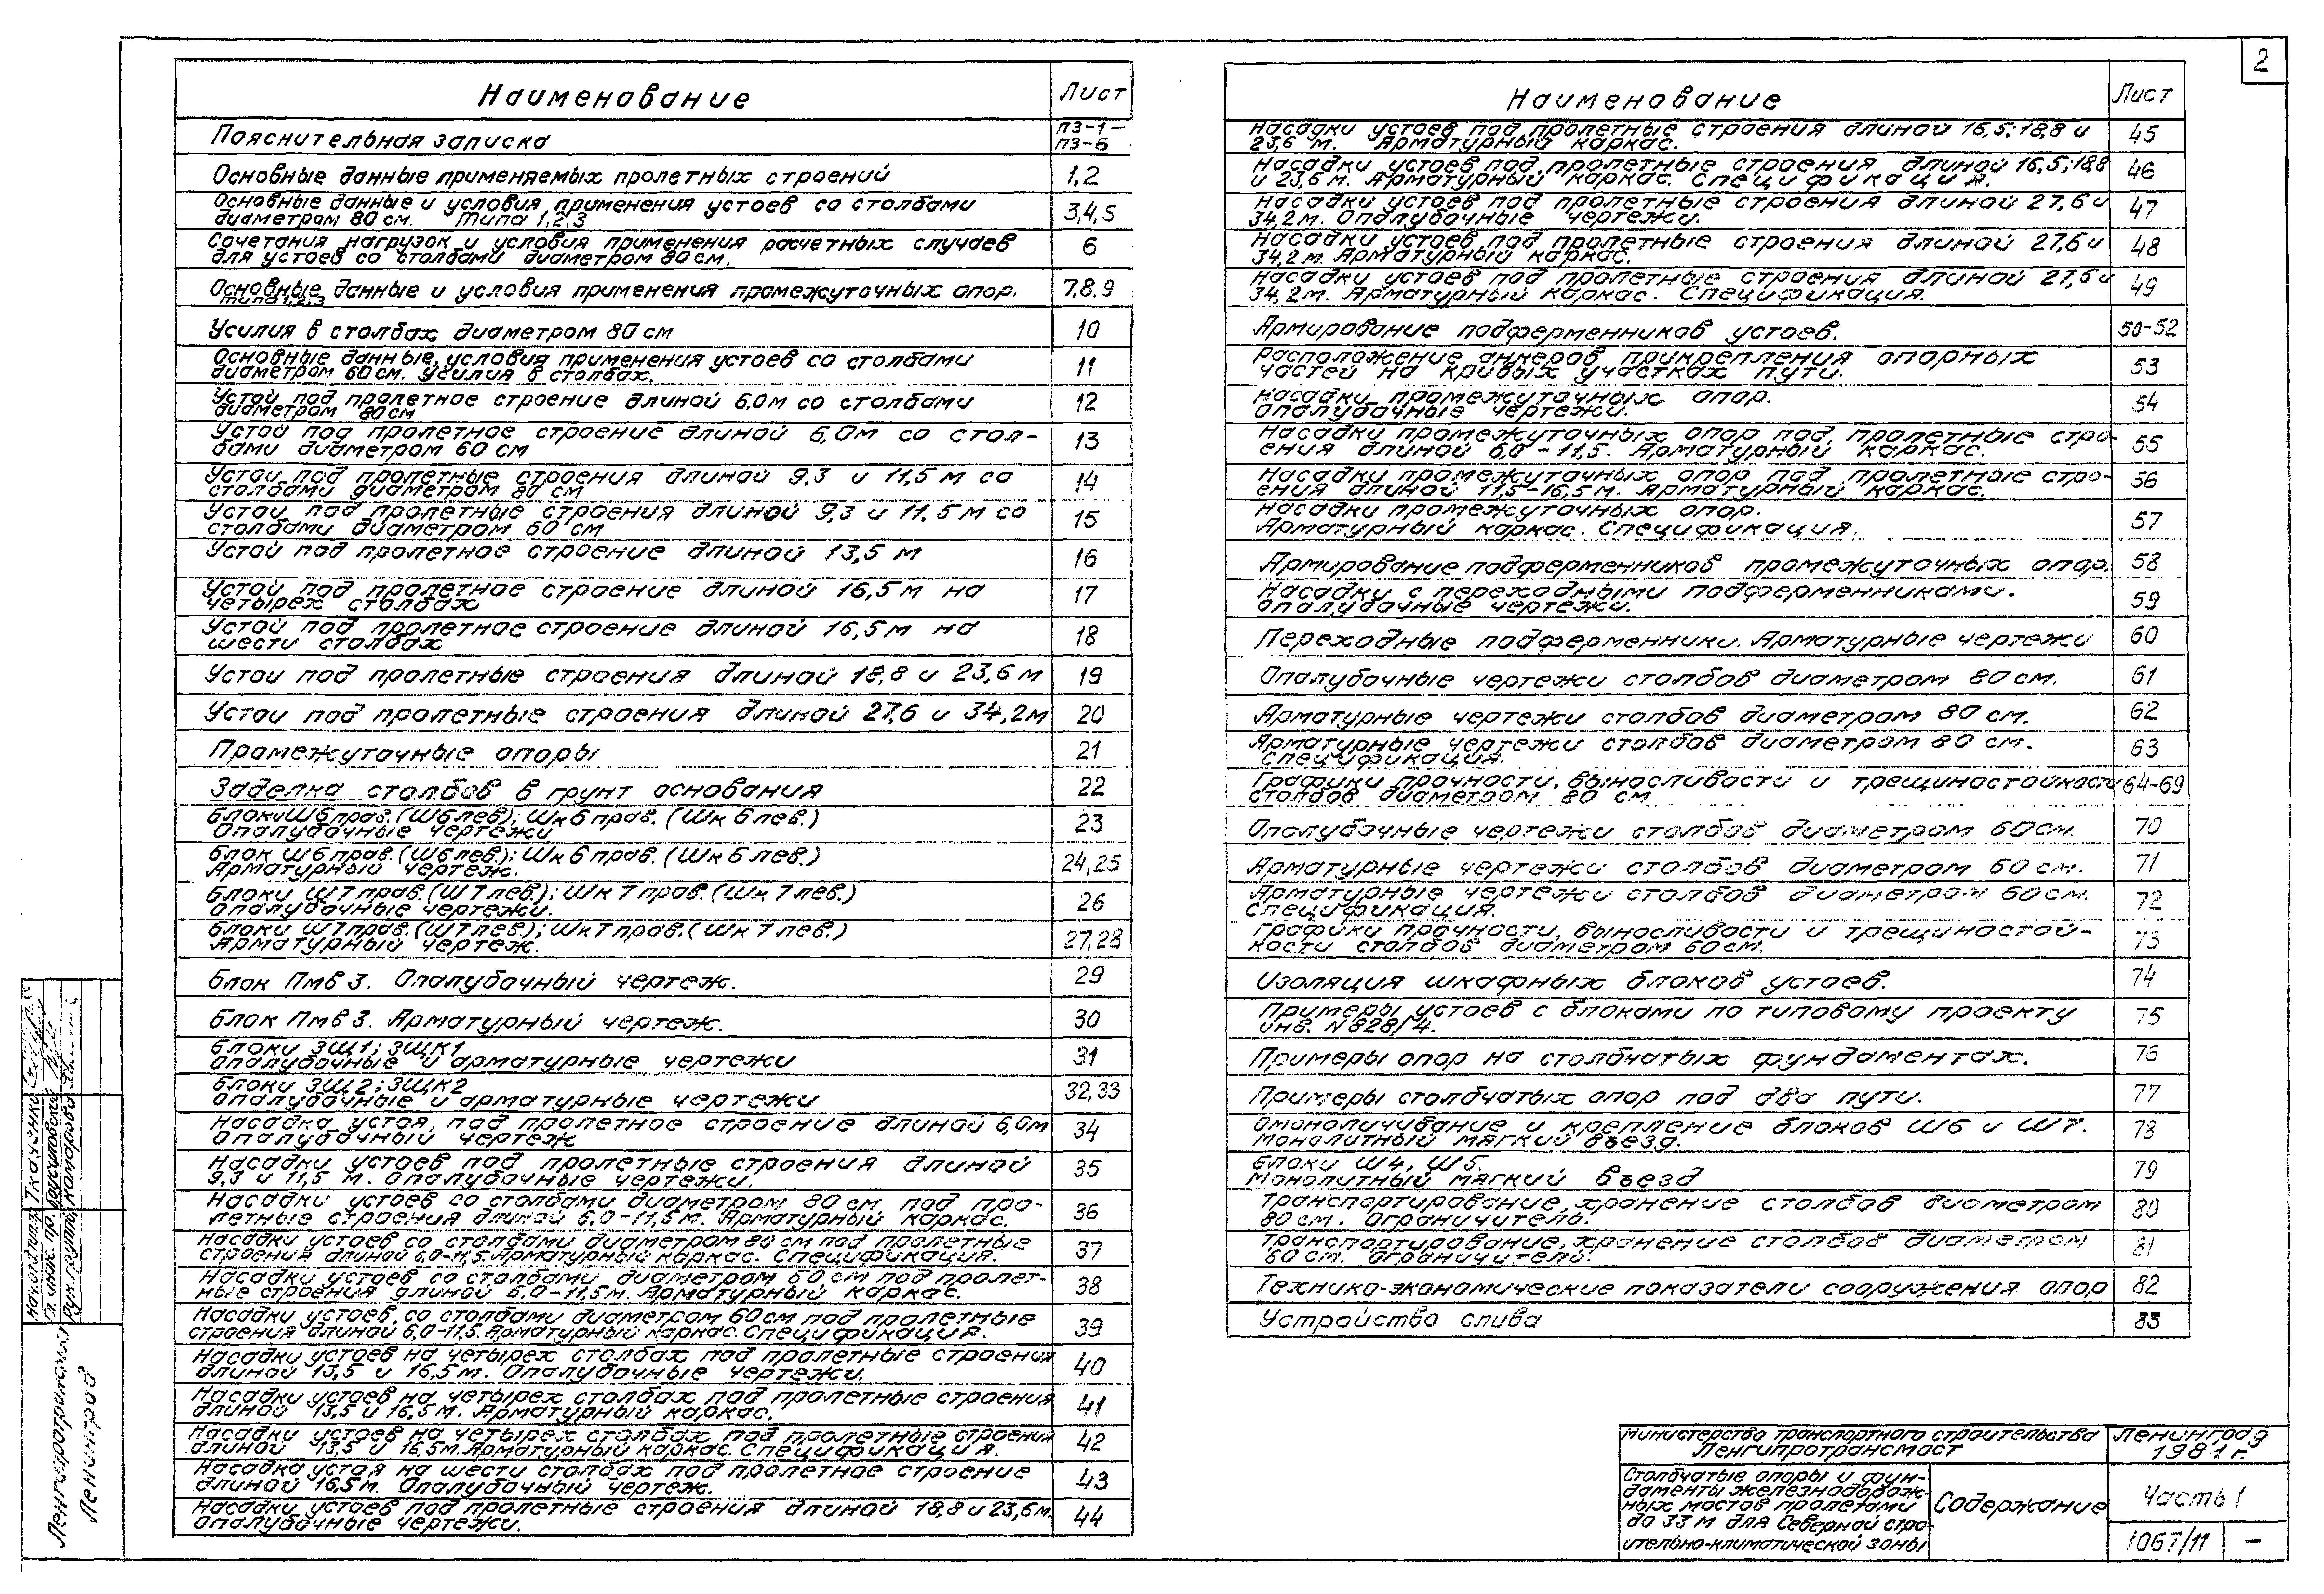 2
Наименование
Лист
Пояснительная записка
ПЗ-1 –
ПЗ-6
Основные данные применяемых пролетных строений
1,2
Основные данные и условия применения устоев со столбами
диаметром 80 см. Типа 1,2,3
3,4,5
Сочетания нагрузок и условия применения расчетных случаев
для устоев со столбами диаметром 80 см.
6
Основные данные и условия применения промежуточных опор.
Типа 1,2,3
7,8,9
Усилия в столбах диаметром 80 см
10
Основные данные, условия применения устоев со столбами
диаметром 60 см. Усилия в столбах.
11
Устой под пролетное строение длиной 6,0 м со столбами
диаметром 80 см
12
Устой под пролетное строение длиной 6,0м со стол-
бами диаметром 60 см
13
Устои под пролетные строения длиной 9,3 и 11,5 м со
столбами диаметром 80 см
14
Устои под пролетные строения длиной 9,3 и 11,5 м со
столбами диаметром 60 см
15
Устой под пролетное строение длиной 13,5 м
16
Устой под пролетное строение длиной 16,5 м на
четырех столбах
17
Устой под пролетное строение длиной 16,5 м на
шести столбах
18
Устои под пролетные строения длиной 18,8 и 23,6 м
19
Устои под пролетные строения длиной 27,6 и 34,2м
20
Промежуточные опоры
21
Заделка столбов в грунт основания
22
Блоки Ш6 прав. (Ш6 лев); Шк6 прав. (Шк 6 лев.)
Опалубочные чертежи
23
Блок Ш6 прав. (Ш6 лев.); Шк 6 прав. (Шк 6 лев.)
Арматурный чертеж.
24,25
Блоки Ш 7 прав. (Ш 7 лев.); Шк 7 прав. (Шк 7 лев.)
Опалубочные чертежи.
26
Блоки Ш 7 прав. (Ш 7 лев.); Шк 7 прав. (Шк 7 лев.)
Арматурный чертеж.
27,28
Блок Пмв 3. Опалубочный чертеж.
29
Блок Пмв 3. Арматурный чертеж.
30
Блоки ЗЩ1; ЗЩК1
Опалубочные и арматурные чертежи
31
Блоки ЗЩ2; ЗЩК2
Опалубочные и арматурные чертежи
32,33
Насадка устоя, под пролетное строение длиной 6,0м
Опалубочный чертеж
34
Насадки устоев под пролетные строения длиной
9,3 и 11,5 м. Опалубочные чертежи.
35
Насадки устоев со столбами диаметром 80 см под про-
летные строения длиной 6,0-11,5м. Арматурный каркас.
36
Насадки устоев со столбами диаметром 80 см под пролетные
строения длиной 6,0-11,5. Арматурный каркас. Спецификация.
37
Насадки устоев со столбами диаметром 60 см под пролет-
ные строения длиной 6,0-11,5м. Арматурный каркас.
38
Насадки устоев, со столбами диаметром 60см под пролетные
строения длиной 6,0-11,5. Арматурный каркас. Спецификация.
39
Насадки устоев на четырех столбах под пролетные строения
длиной 13,5 и 16,5 м. Опалубочные чертежи.
40
Насадки устоев на четырех столбах под пролетные строения
длиной 13,5 и 16,5 м. Арматурный каркас.
41
Насадки устоев на четырех столбах под пролетные строения
длиной 13,5 и 16,5м. Арматурный каркас. Спецификация.
42
Насадка устоя на шести столбах под пролетное строение
длиной 16,5 м. Опалубочный чертеж.
43
Насадки устоев под пролетные строения длиной 18,8 и 23,6 м.
Опалубочные чертежи.
44
Наименование
Лист
Насадки устоев под пролетные строения длиной 16,5; 18,8 и
23,6 м. Арматурный каркас.
45
Насадки устоев под пролетные строения длиной 16,5; 18,8
и 23,6 м. Арматурный каркас. Спецификация.
46
Насадки устоев под пролетные строения длиной 27,6 и
34,2 м. Опалубочные чертежи.
47
Насадки устоев под пролетные строения длиной 27,6 и
34,2 м. Арматурный каркас.
48
Насадки устоев под пролетные строения длиной 27,6 и
34,2 м. Арматурный каркас. Спецификация.
49
Армирование подферменников устоев.
50-52
Расположение анкеров прикрепления опорных
частей на кривых участках пути.
53
Насадки промежуточных опор.
Опалубочные чертежи.
54
Насадки промежуточных опор под пролетные стро-
ения длиной 6,0 - 11,5. Арматурный каркас.
55
Насадки промежуточных опор под пролетные стро-
ения длиной 11,5-16,5 м. Арматурный каркас.
56
Насадки промежуточных опор.
Арматурный каркас. Спецификация.
57
Армирование подферменников промежуточных опор.
58
Насадки с переходными подферменниками.
Опалубочные чертежи.
59
Переходные подферменники. Арматурные чертежи
60
Опалубочные чертежи столбов диаметром 80 см.
61
Арматурные чертежи столбов диаметром 80 см.
62
Арматурные чертежи столбов диаметром 80 см.
Спецификация.
63
Графики прочности, выносливости и трещиностойкости
столбов диаметром 80 см
64-69
Опалубочные чертежи столбов диаметром 60см.
70
Арматурные чертежи столбов диаметром 60 см.
71
Арматурные чертежи столбов диаметром 60 см.
Спецификация.
72
Графики прочности, выносливости и трещиностой-
кости столбов диаметром 60 см.
73
Изоляция шкафных блоков устоев.
74
Примеры устоев с блоками по типовому проекту
инв. N 828/4.
75
Примеры опор на столбчатых фундаментах.
76
Примеры столбчатых опор под два пути.
77
Омоноличивание и крепление блоков Ш6 и Ш7.
Монолитный мягкий въезд.
78
Блоки Ш4, Ш5.
Монолитный мягкий въезд
79
Транспортирование, хранение столбов диаметром
80 см. Ограничитель.
80
Транспортирование, хранение столбов диаметром
60 см. Ограничитель.
81
Технико-экономические показатели сооружения опор
82
Устройство слива
83
Министерство транспортного строительства
Ленгипротрансмост
Ленинград
1981 г.
Столбчатые опоры и фун-
даменты железнодорож-
ных мостов пролетами
до 33 м для Северной стро-
ительно-климатической зоны
Содержание
Часть 1
1067/11
–
Нач. отд. Ткаченко
Гл. инж. пр.
Рук. группы Комарова
Ленгипротрансмост
Ленинград